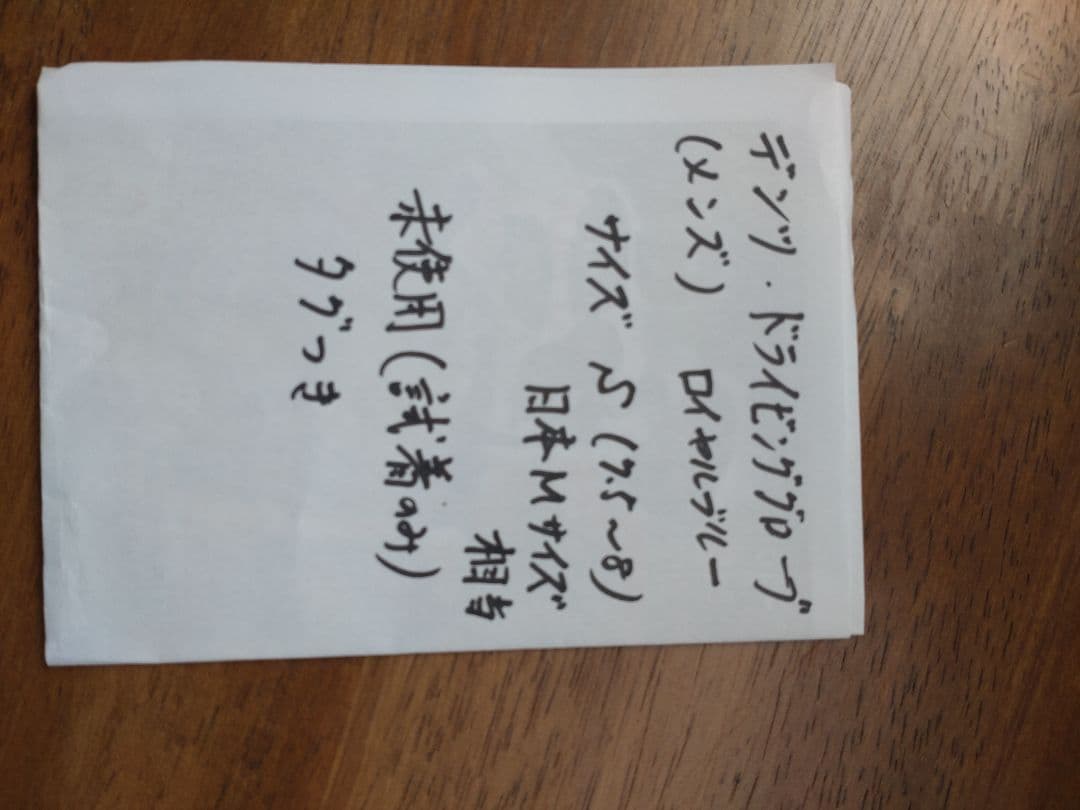 デンツ・ドライビンググローブ
(メンズ) ロイヤルブルー
サイズ S (7.5~8)
日本Mサイズ
相当
未使用(試着のみ)
タグつき